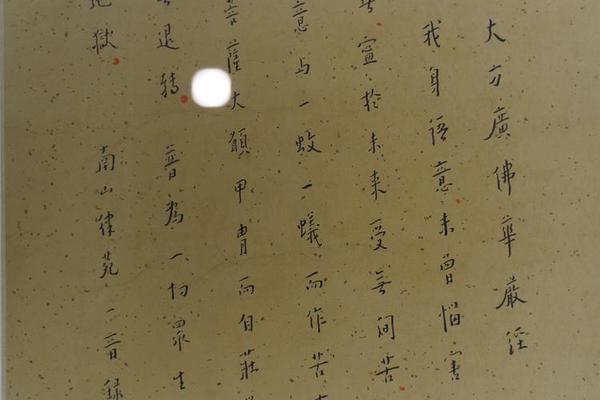 大方廣佛華嚴經
我身語意未曾惱害
宣於未來受無間苦
意与一蚊一蟻而作苦
菩薩大願甲冑而自莊
退轉 普為一切眾生
獄 南山律苑一音錄